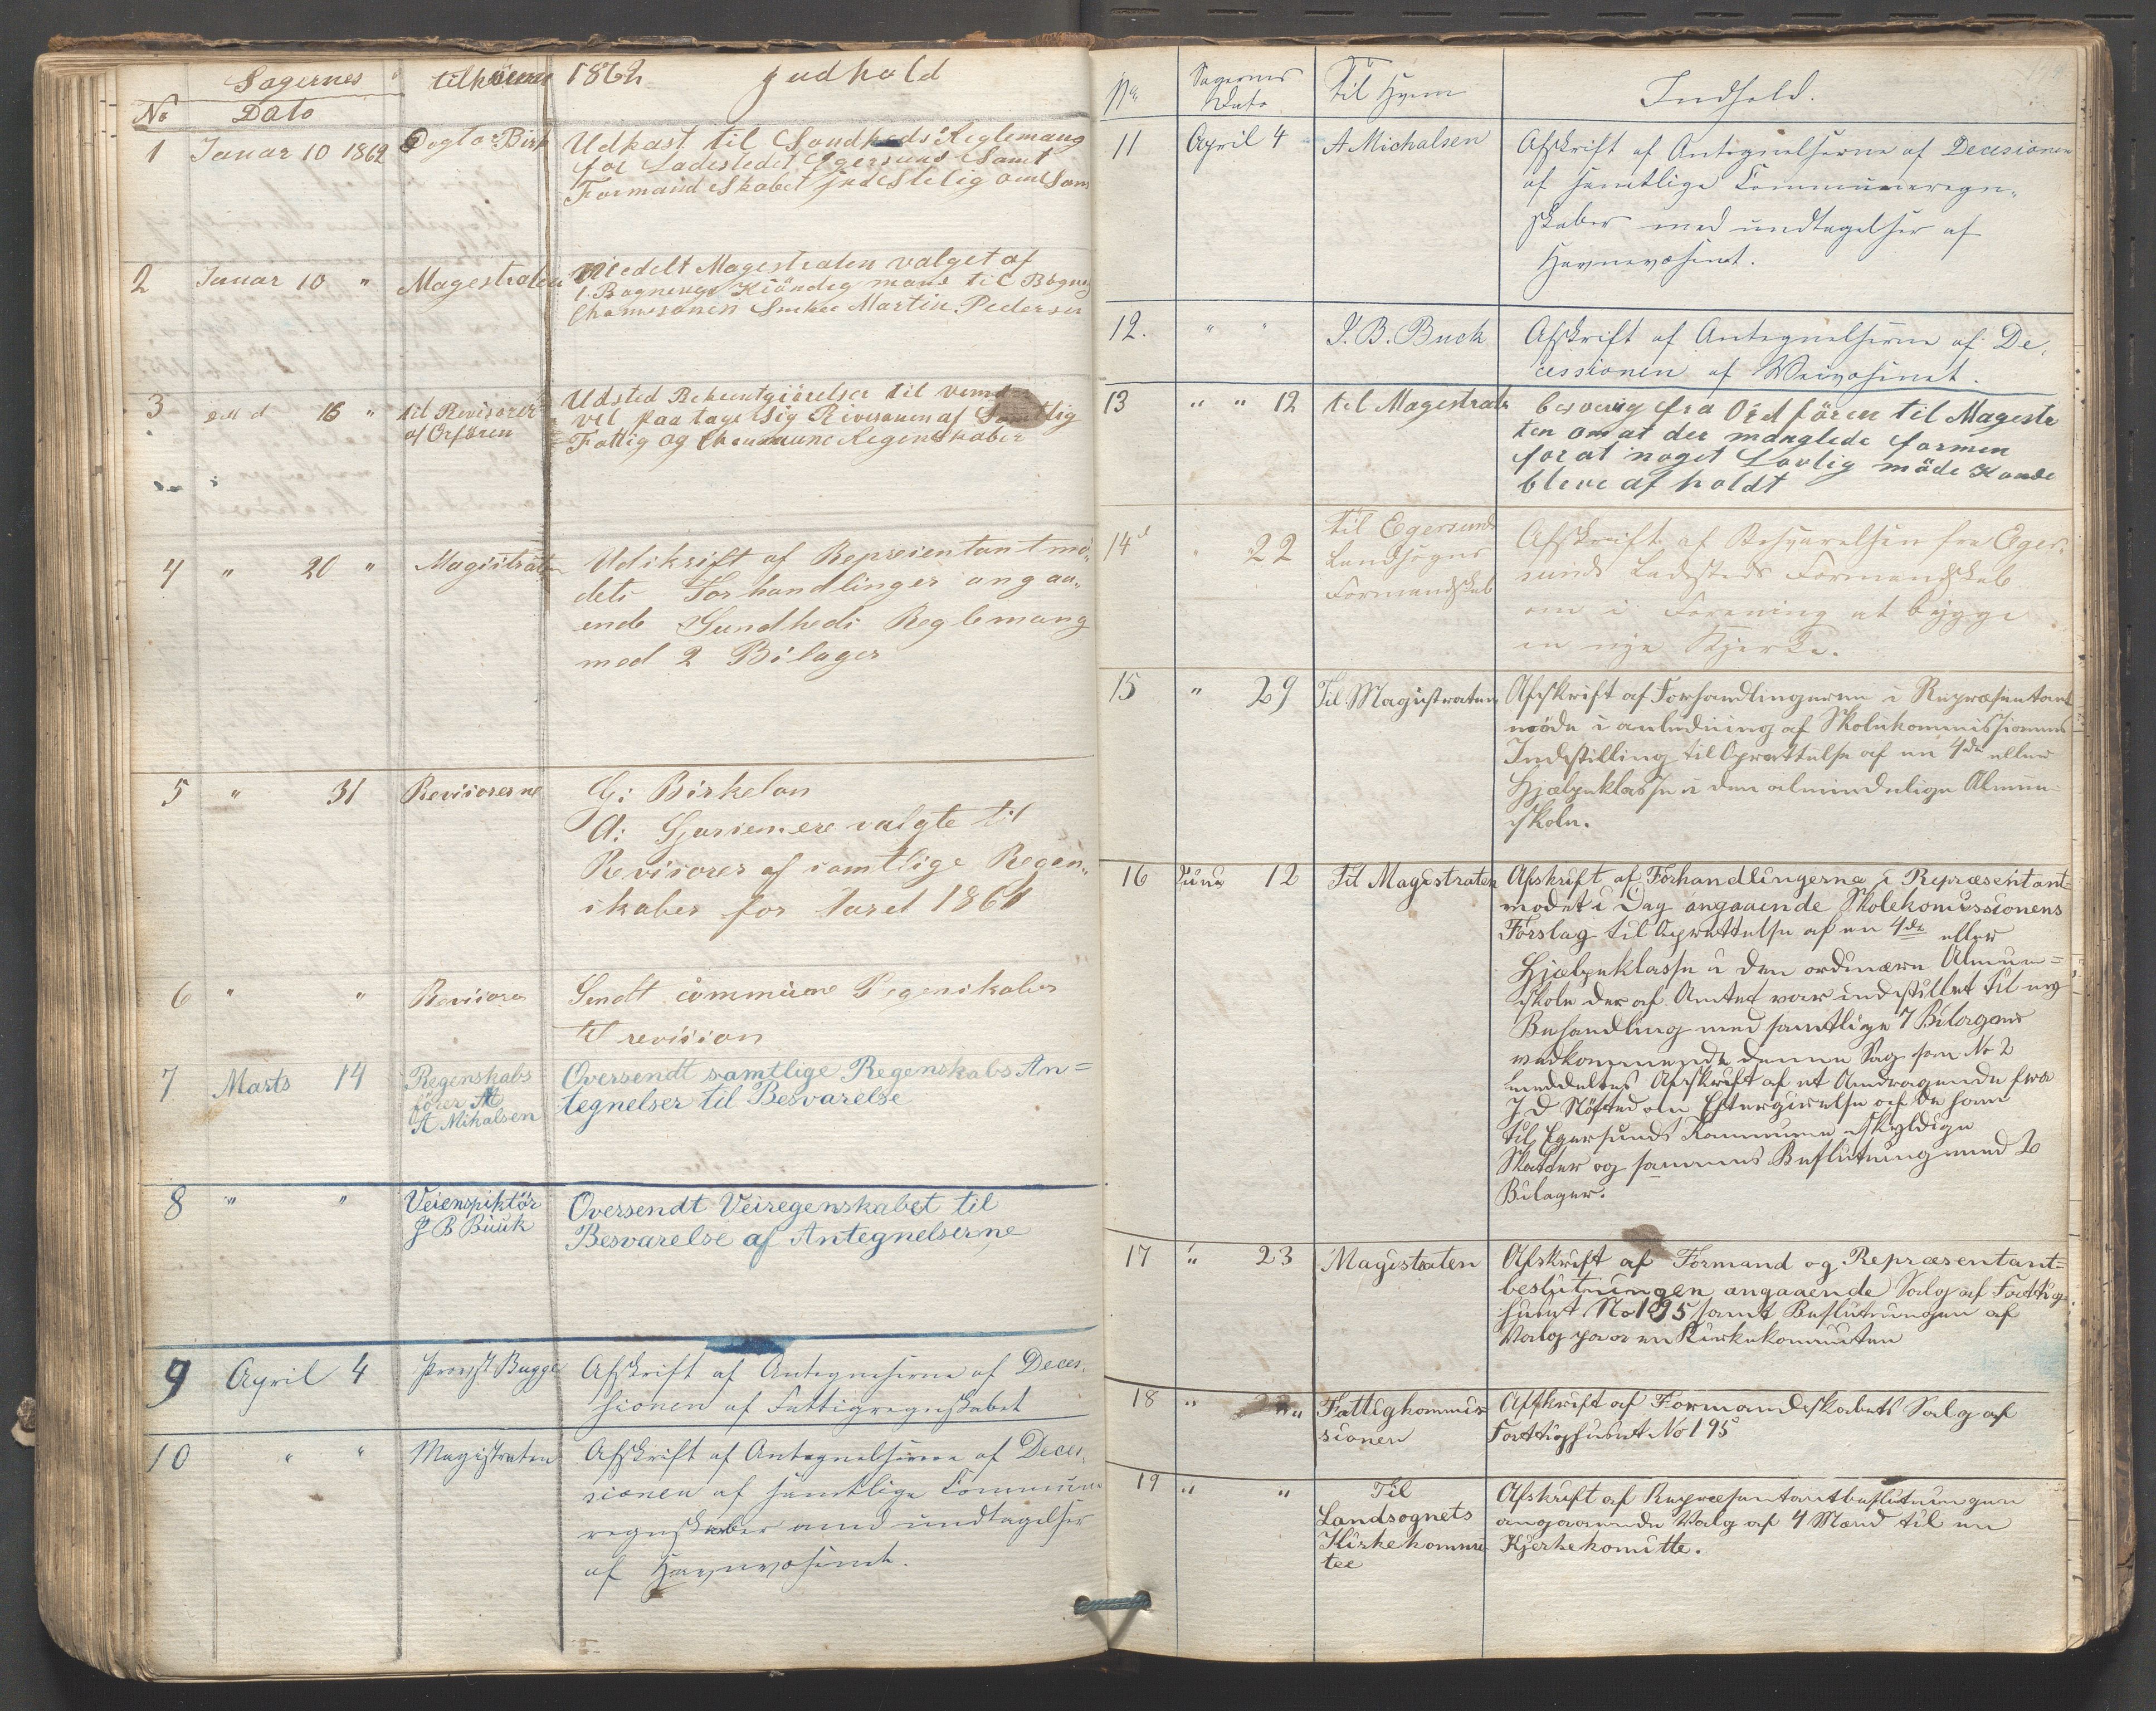 Sagernes tilhörene 1862 Indhold
No Dato
1 Januar 10 1862 Dogtor Birk Udkast til Sundheds Reglemang
for Ladestedet Egersund Samt
Formandskabet
2 Januar 10 " Magestraten Meedelt Magestraten valget af
1 Bygnings Kiöndig mand til Bögnes
Chomesonen Snekker Martin Pedersen
3 16 " til Revisorer Udsted Bekentgiörelser til vemd
af Orforen vil paa tage Sig Revesonen af Samtlig
Fattig og Chommune Regenskaber
4 " 20 " Magistraten Udskrift af Representantmö-
dets Forhandlinger angaa-
ende Sundheds Reglemang
med 2 Bilager
5 " 31 Revisorerne G: Birkelan
A: valgte til
Revisorer af samtlige Regen-
skaber for Aaret 1861
6 " " Revisore Sendt commune Regenskaber
til revision
7 Marts 14 Regenskabs Oversendt samtlige Regenskabs An=
förer tegnelser til Besvarelse
A Mikalsen
8 " " Veienspiktör Oversendt Veiregenskabet til
J B Buuk Besvarelse af Antegnelserne
9 April 4 Provst Bugge Afskrift af Antegnelserne af Deces-
sionen af Fattigregnskabet
10 " " Magistraten Afskrift af Antegnelserne af Deces-
sionen af samtlige Commune
regnskaber med undtagelser
af Havnevæsenet.
No Sagernes Til Hvem Indhold.
Dato
11 April 4 A Michalsen Afskrift af Antegnelserne af Decesionen
af samtlige Communeregn-
skaber med undtagelser af
Havnevæsenet.
12. " " J. B. Buck Afskrift af Antegnelserne af De-
cessionen af Veivæsenet.
13 " " 12 til Magestrate besvering fra Ordfören til Magestra
ten om at der manglede formen
for at noget Lovlig möde Kunde
blive af holdt
14 " 22 Til Egersunds Afskrift af Besvarelsen fra Eger-
Landsogns sunds Ladesteds Formandskab
Formandskab om i Forening at bygge
en nye Kjerke.
15 " 29 Til Magistraten Afskrift af Forhandlingerne i Repræsentant
möde i anledning af Skolekommissionens
Indstilling til Oprettelse af en 4de eller
Hjælpeklasse i den almindelige Almue-
skole.
16 Juni 12 Til Magistraten Afskrift af Forhandlingerne i Repræsentant-
modet i Dag angaaende Skolekomissionens
Forslag til Oprettelse af en 4de eller
Hjælpeklasse i den ordinære Almue=
skole der af Amtet var indstillet til ny
Behandling med samtlige 7 Bilagene
vedkommende denne Sag som No 2
meddeltes Afskrift af et Andragende fra
J D om Eftergivelse af de ham
til Egersunds Kommune skyldige
Skatter og sammes Beslutning med 2
Bilager.
17 " 23 Magistraten Afskrift af Formand og Repræsentant=
beslutningen angaaende Salg af Fattig
huset No 195 samt Beslutningen af
Valg paa en Kirkekomiteen
18 " " Fattigkommis Afskrift af Formandskabets Salg af
sionen Fattighuset No 195
19 " " Til Afskrift af Repræsentantbeslutningen
Landsognets angaaende Valg af 4 Mænd til en
Kirkekommi Kjerkekomitte.
tee